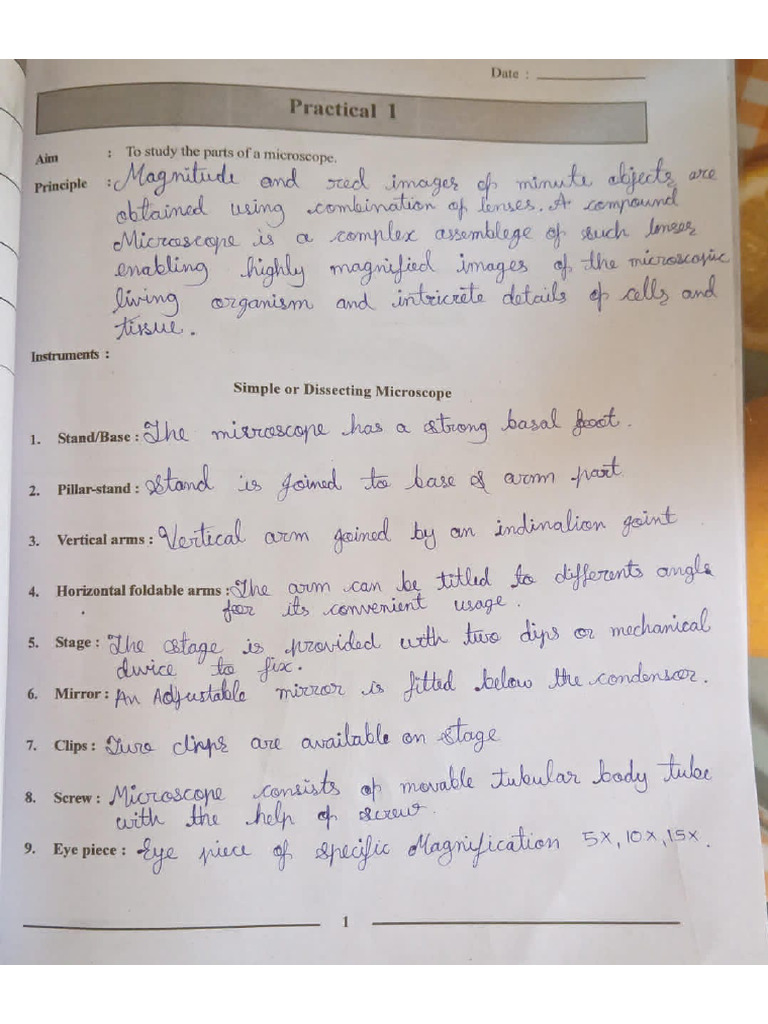 Date : ____________
Practical 1
Aim : To study the parts of a microscope.
Principle : Magnitude and red images of minute objects are
obtained using combination of lenses. A compound
Microscope is a complex assemblege of such lenses
enabling highly magnified images of the microscopic
living organism and intricrete details of cells and
tissue.
Instruments :
Simple or Dissecting Microscope
1. Stand/Base : The mirroscope has a strong basal foot.
2. Pillar-stand : Stand is joined to base & arm part
3. Vertical arms : Vertical arm joined by an indinalion joint
4. Horizontal foldable arms : The arm can be titled to differents angle
for its convenient usage.
5. Stage : The stage is provided with two dips or mechanical
dwice to fix.
6. Mirror : An Adjustable mirror is fitted below the condensor.
7. Clips : Two clips are available on stage
8. Screw : Microscope consists of movable tubular body tube
with the help of screw.
9. Eye piece : Eye piece of specific Magnification 5x, 10x, 15x.
1